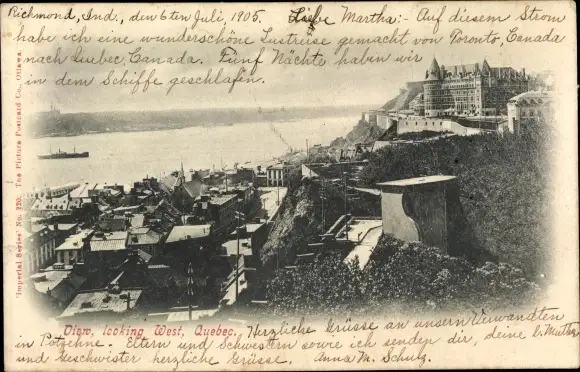 Richmond, Ind., den 6ten Juli, 1905. Liebe Martha:- Auf diesem Strom
habe ich eine wunderschöne Lustreise gemacht von Toronto, Canada
nach Quebec, Canada. Fünf Nächte haben wir
in dem Schiffe geschlafen.
'Imperial Series' No. 720. The Picture Postcard Co., Ottawa.
View, looking West, Quebec.
Herzliche Grüsse an unsern Verwandten
in Potzehne. Eltern und Schwestern sowie ich senden dir, deine l. Mutter
und Geschwister herzliche Grüsse. Anna M. Schulz.